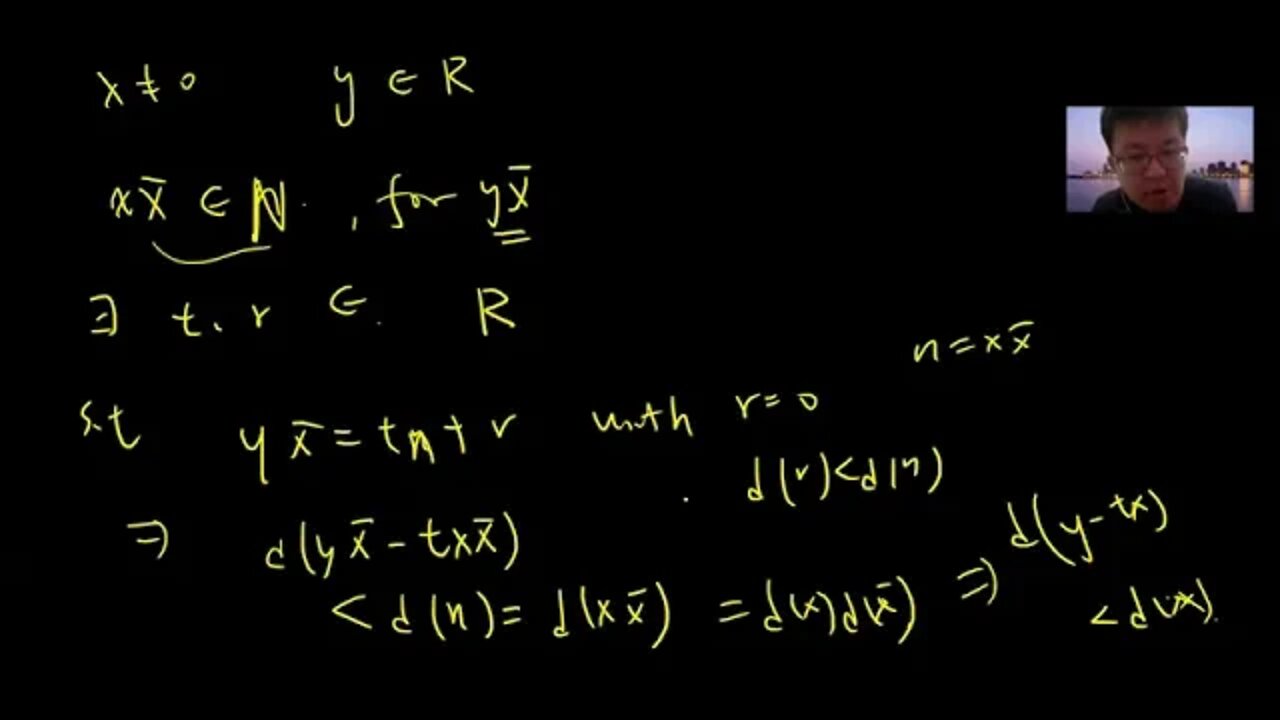 x ≠ 0 y ∈ R
x x̄ ∈ N , for y x̄
∃ t, r ∈ R
n = x x̄
s.t y x̄ = t n + r with r = 0
d(r) < d(n)
⇒ d(y x̄ - t x x̄)
< d(n) = d(x x̄) = d(x) d(x̄) ⇒ d(y - tx)
< d(x).